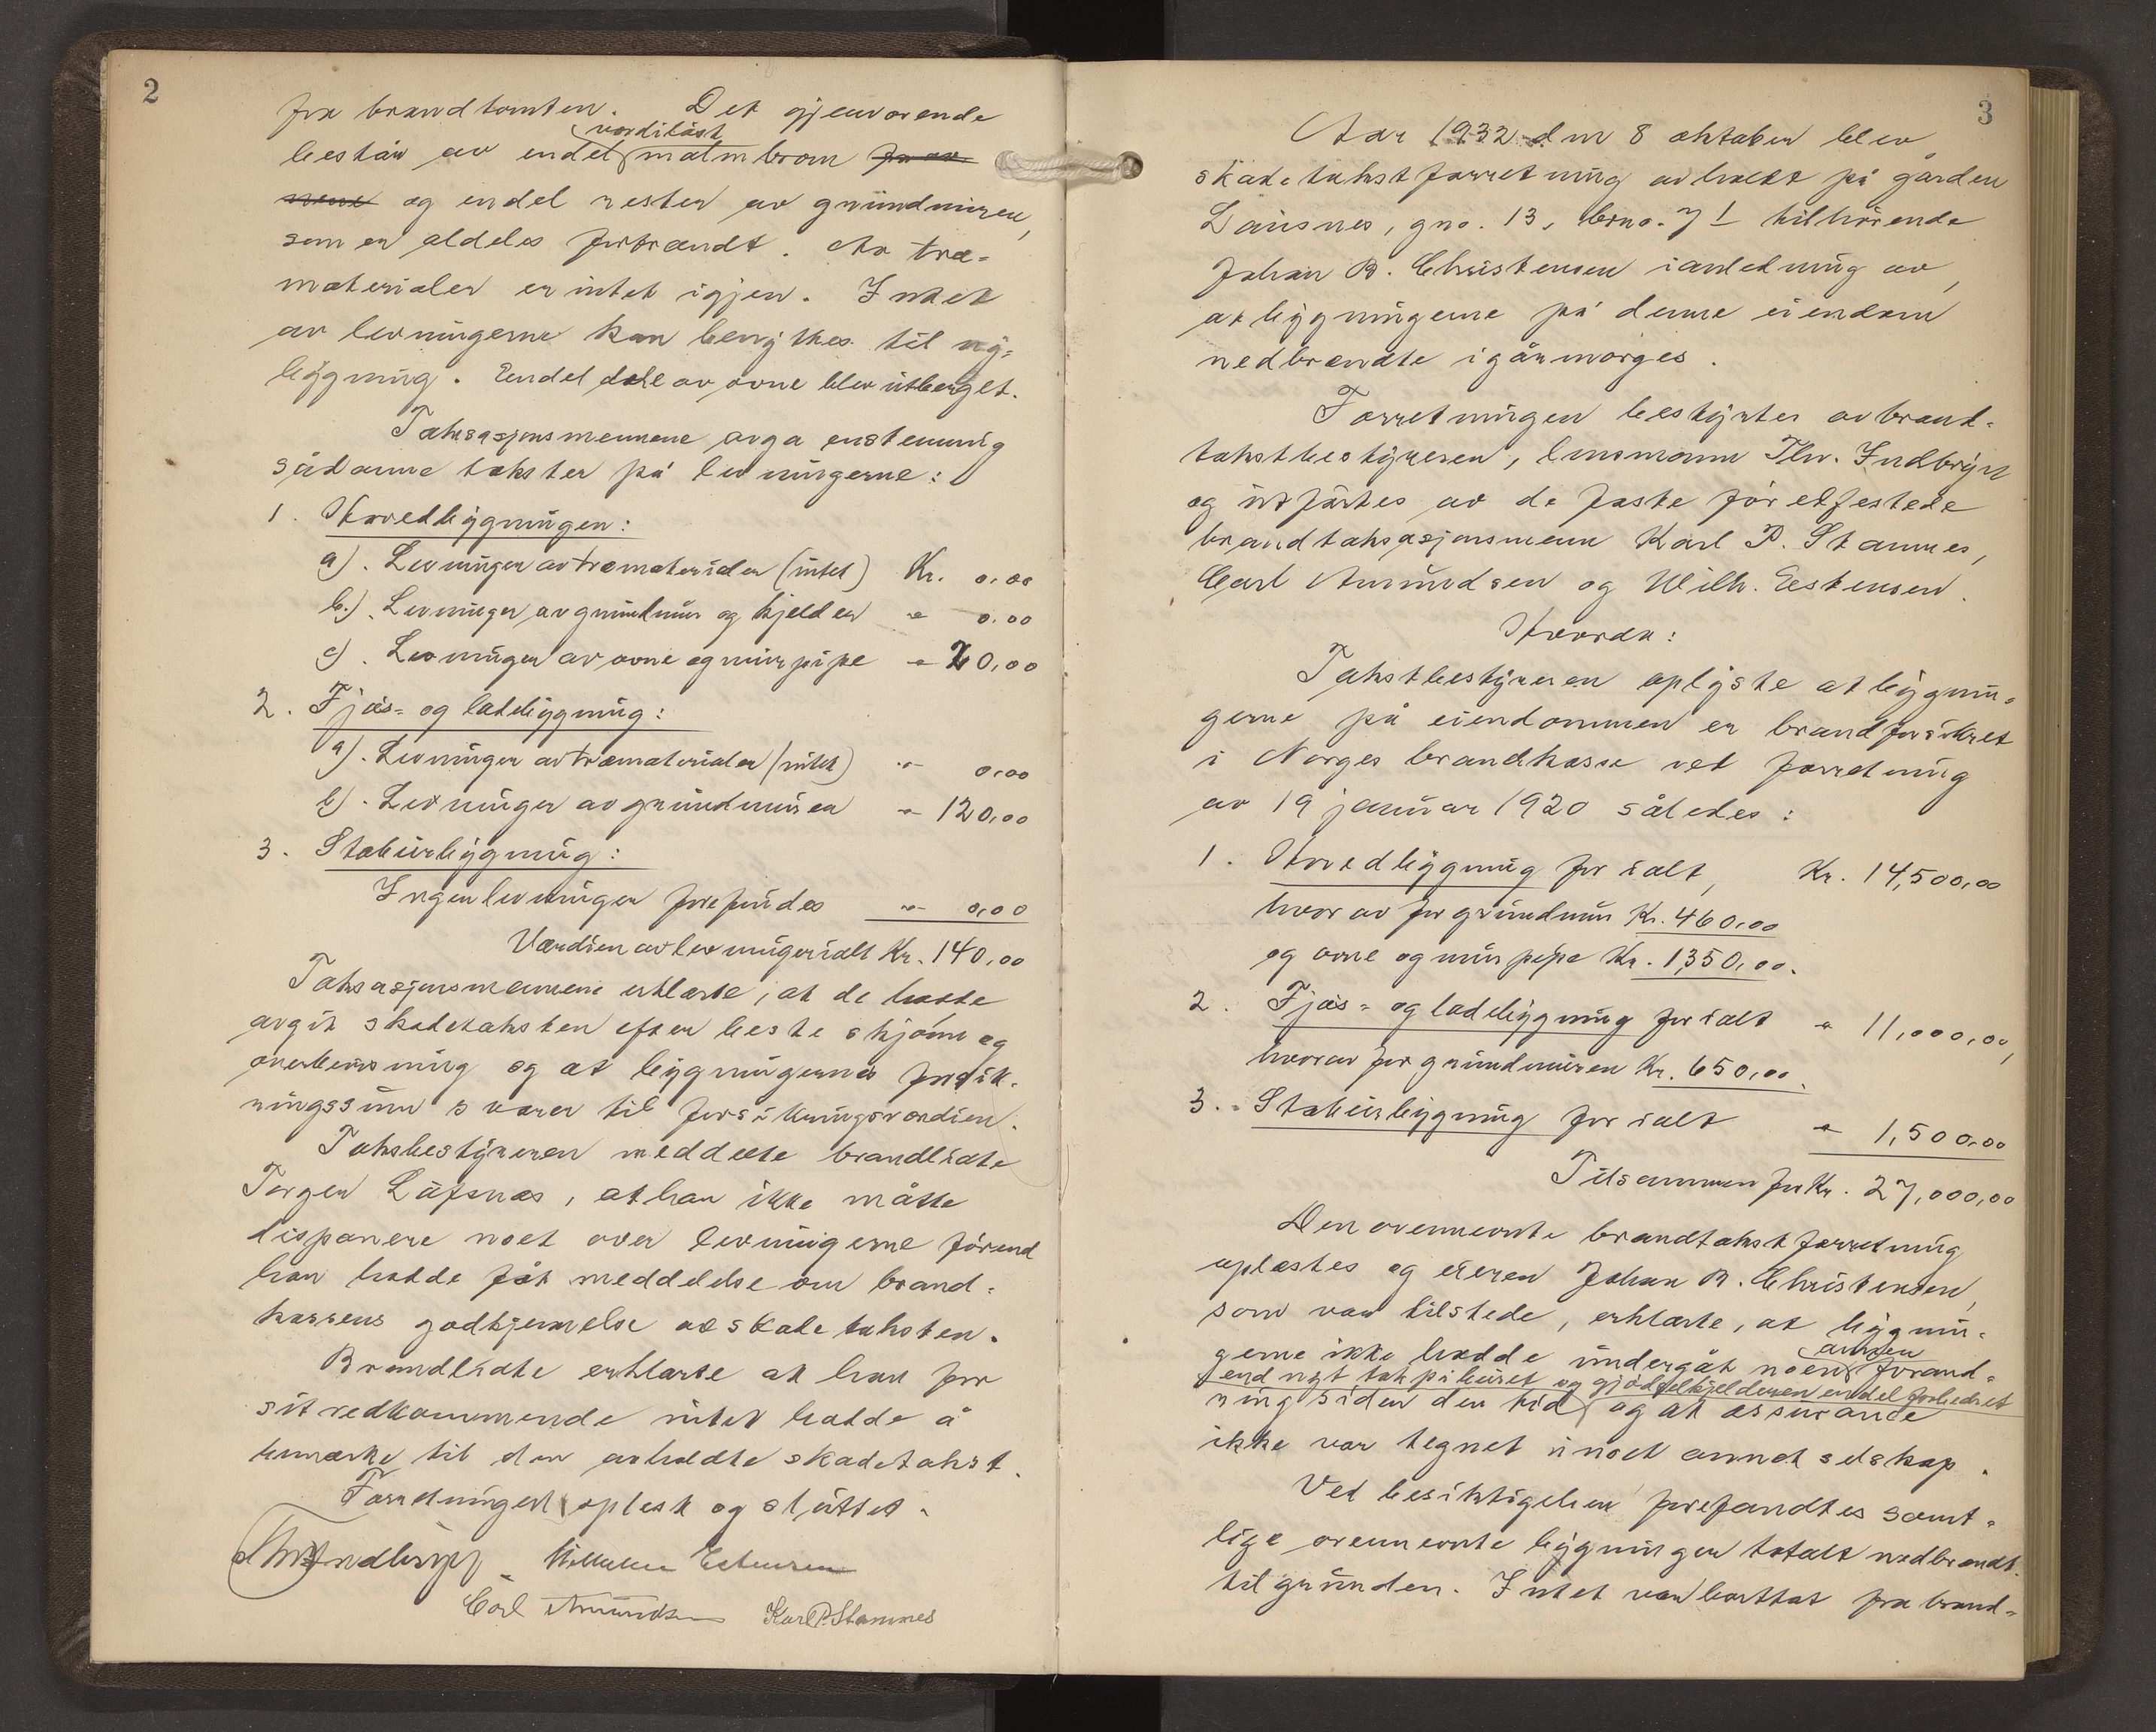 2
fra brandtomten. Det gjenværende
værdiløst
består av endel malmbrom for ov
nene og endel rester av grundmuren,
som er aldeles forbrændt. Av træ-
materialer er intet igjen. Intet
av levningerne kan benyttes til ny-
bygning. Endel dele av ovne blev utberget.
Taksasjonsmennene avga enstemmig
sådanne takster på levningerne:
1. Hovedbygningen:
a). Levninger av træmaterialer (intet) Kr. 0,00
b.). Levninger av grundmur og kjelder " 0,00
c). Levninger av ovne og murpipe " 20,00
2. Fjøs- og ladebygning:
a). Levninger av træmaterialer (intet) " 0,00
b). Levninger av grundmuren " 120,00
3. Stabursbygning:
Ingen levninger forefindes " 0,00
Værdien av levninger ialt Kr. 140,00
Taksasjonsmennene erklærte, at de hadde
avgit skadetaksten efter beste skjønn og
overbevisning og at bygningernes forsik-
ringssum svarer til forsikringsværdien.
Takstbestyreren meddelte brandlidte
Torger Låfsnæs, at han ikke måtte
disponere noet over levningerne førend
han hadde fåt meddelelse om brand-
kassens godkjennelse av skadetaksten.
Brandlidte erklærte at han for
sit vedkommende intet hadde å
bemærke til den avholdte skadetakst.
Forretningen oplest og sluttet.
Thv Indbryn Wilhelm Estensen
Carl Amundsen Karl P. Stamnes
3
Aar 1932 den 8 oktober blev
skadetakstforretning avholdt på gården
Lausnes, gno. 13, brno. 71 tilhørende
Johan B. Christensen i anledning av,
at bygningerne på denne eiendom
nedbrændte igårmorges.
Forretningen bestyrtes av brand-
takstbestyreren, lensmann Thv. Indbryn
og utførtes av de faste føredfestede
brandtaksasjonsmenn Karl P. Stamnes,
Carl Amundsen og Wilh. Estensen.
Hvorda:
Takstbestyreren oplyste at bygnin-
gerne på eiendommen er brandforsikret
i Norges brandkasse ved forretning
av 19 januar 1920 således:
1. Hovedbygning for ialt, Kr. 14,500,00
hvorav for grundmur Kr. 460,00
og ovne og murpipe Kr. 1,350,00.
2. Fjøs- og ladebygning for ialt " 11,000,00,
hvorav for grundmuren Kr. 650,00.
3. Stabursbygning for ialt " 1,500,00
Tilsammen for Kr. 27,000,00
Den ovennevnte brandtakstforretning
oplæstes og eieren Johan B. Christensen,
som var tilstede, erklærte, at bygnin-
annen
gerne ikke hadde undergåt noen forand-
end nyt tak på huset og gjødselkjelderen endel forbedret
ring siden den tid og at assurance
ikke var tegnet i noet annet selskap.
Ved besiktigelsen forefandtes samt-
lige ovennevnte bygninger totalt nedbrændt
til grunden. Intet var borttat fra brand-